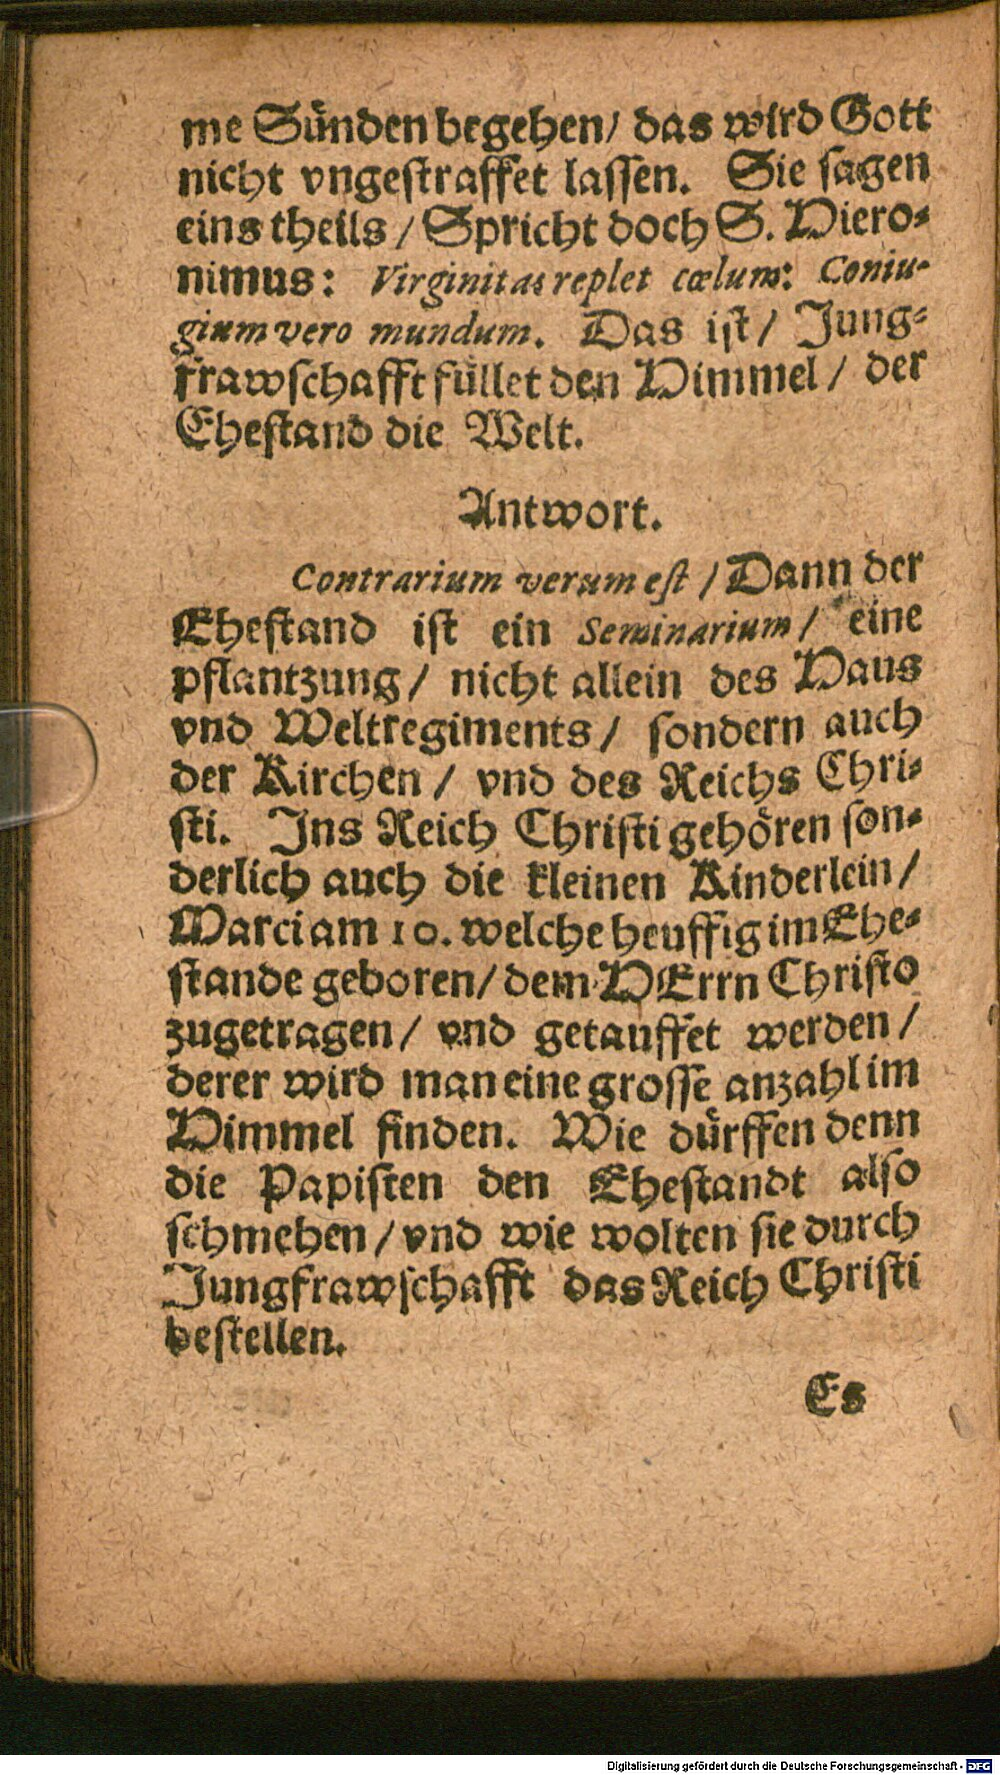 me Sünden begehen/ das wird Gott
nicht vngestraffet lassen. Sie sagen
eins theils / Spricht doch S. Hiero-
nimus: Virginitas replet cœlum: Coniu-
gium vero mundum. Das ist / Jung-
frawschafft füllet den Himmel / der
Ehestand die Welt.
Antwort.
Contrarium verum est / Dann der
Ehestand ist ein Seminarium / eine
pflantzung / nicht allein des Haus
vnd Weltregiments / sondern auch
der Kirchen / vnd des Reichs Chri-
sti. Ins Reich Christi gehören son-
derlich auch die kleinen Kinderlein /
Marci am 10. welche heuffig im Ehe-
stande geboren / dem HErrn Christo
zugetragen / vnd getauffet werden /
derer wird man eine grosse anzahl im
Himmel finden. Wie dürffen denn
die Papisten den Ehestandt also
schmehen / vnd wie wolten sie durch
Jungfrawschafft das Reich Christi
bestellen.
Es
Digitalisierung gefördert durch die Deutsche Forschungsgemeinschaft - DFG